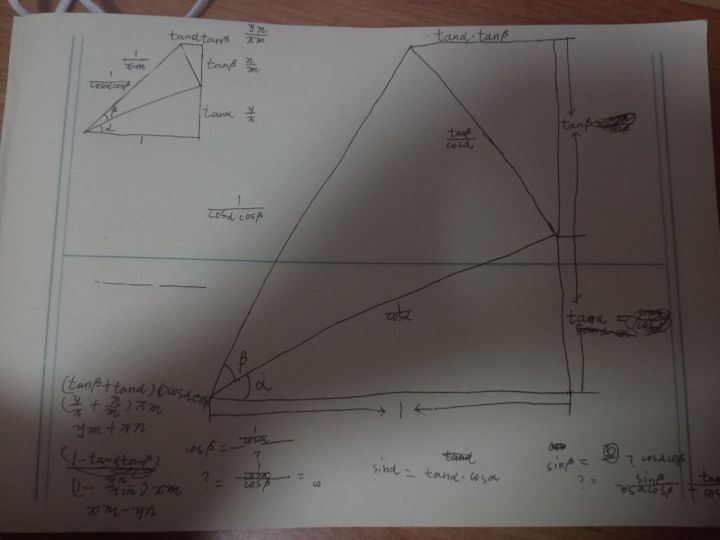 tanα tanβ
yn/xm
1/xm
1/cosαcosβ
tanβ n/m
tanα y/x
β
α
1
tanα·tanβ
tanβ
tanβ/cosα
1/cosα cosβ
1/cosα
tanα =
β
α
1
(tanβ + tanα) cosα cosβ
(y/x + n/m) xm
nx + my
(1 - tanα tanβ)
cosβ = 1/cosα / ?
? = 1/cosα / cosβ =
sinα = tanα·cosα
sinβ = ? cosαcosβ
? = sinβ/cosαcosβ